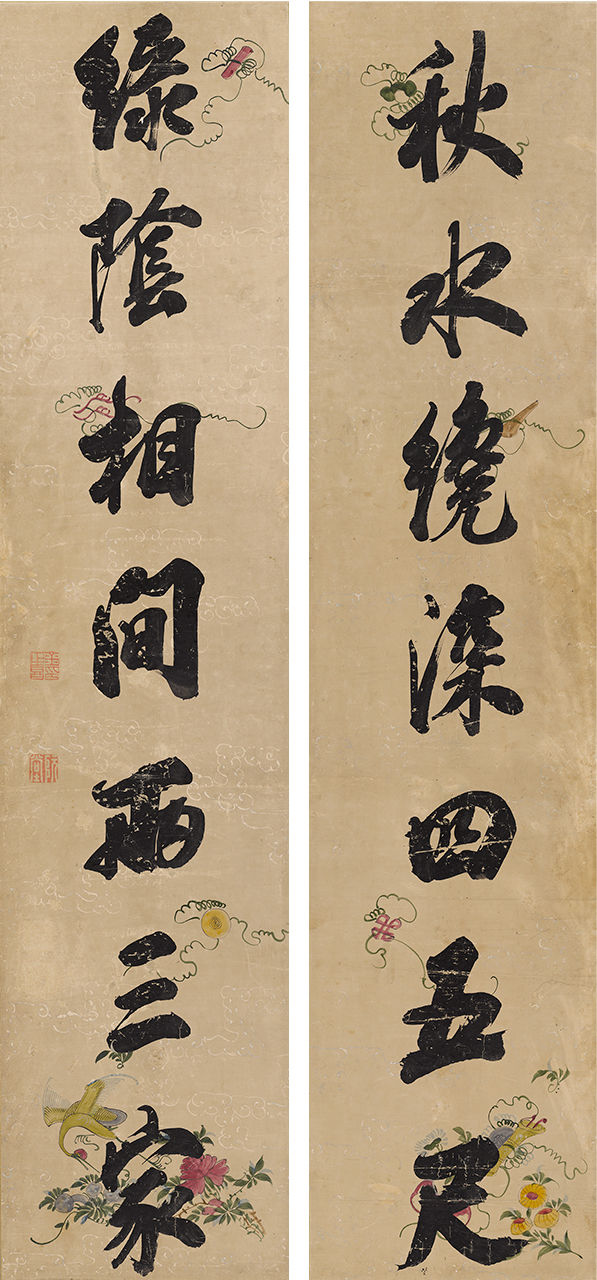 秋水繞深四五尺
綠陰相間兩三家